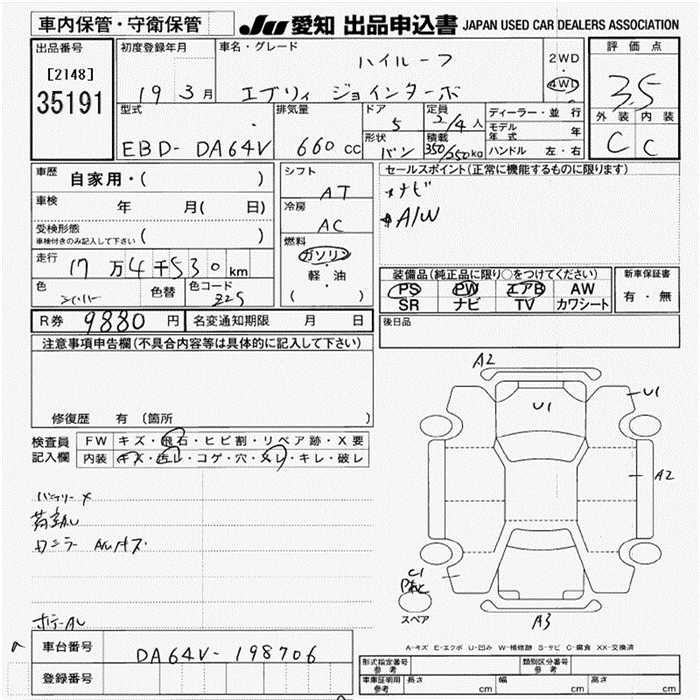 車内保管・守衛保管
JU 愛知 出品申込書 JAPAN USED CAR DEALERS ASSOCIATION
出品番号
[2148]
35191
初度登録年月
19 3月
車名・グレード
ハイルーフ
エブリィ ジョインターボ
2WD
4WD
評価点
3.5
外装 内装
C C
型式
EBD- DA64V
排気量
660 cc
ドア
5
定員
2/4 人
形状
バン
積載
350/250kg
ディーラー・並行
モデル年式 年
ハンドル 左・右
車歴
自家用・( )
車検
年 月( 日)
受検形態
車検付きのみ記入して下さい ( )
走行
17万4千530km
色
シルバー
色替
色コード
Z2S
シフト
AT
冷房
AC
燃料
ガソリン
・
軽・油
( )
セールスポイント(正常に機能するものに限ります)
ナビ
A/W
装備品(純正品に限り○をつけてください)
PS PW エアB AW
SR ナビ TV カワシート
新車保証書
有・無
後日品
R券 9880 円 名変通知期限 月 日
注意事項申告欄(不具合内容等は具体的に記入して下さい)
修復歴 有 (箇所 )
検査員記入欄
FW キズ・飛石・ヒビ割・リペア跡・X要
内装 キズ・汚レ・コゲ・穴・スレ・キレ・破レ
バッテリー メ
ボデーAU
A2
U1
U1
A2
C1
A3
スペア
A-キズ E-エクボ U-凹み W-補修跡 S-サビ C-腐食 XX-交換済
車台番号
DA64V- 198706
登録番号
形式指定番号 参考
類別区分番号 参考
車庫証明用 参考 長さ cm 幅 cm 高さ cm